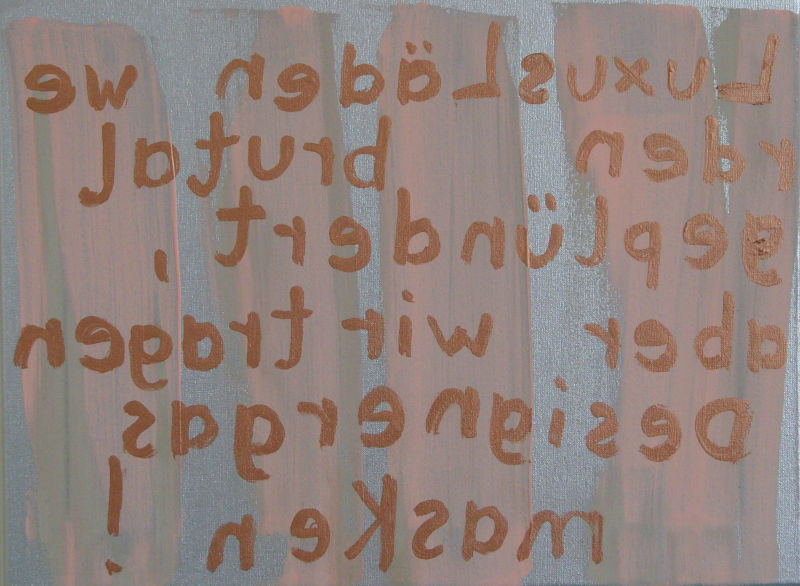 LuxusLäden we
rden brutal
geplündert,
aber wir tragen
Designergas
masken!